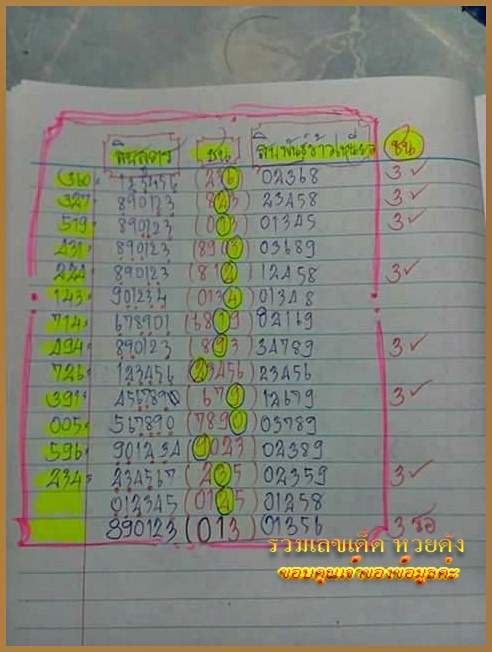 ชน ชน
360 123456 (236) 02368 3 ✓
327 890123 (823) 23458 3 ✓
519 890123 (013) 01345 3 ✓
431 890123 (8903) 03689
224 890123 (812) 12458 3 ✓
143 901234 (0134) 01348
714 678901 (6819) 02169
494 890123 (893) 34789 3 ✓
726 123456 (23456) 23456
391 (679) 12679 3 ✓
005 567890 (7890) 03789
596 901234 (9023) 02389
234 234567 (235) 02359 3 ✓
012345 (0125) 01258
890123 (013) 01356 3 รอ
รวมเลขเด็ด หวยดัง
ขอบคุณเจ้าของข้อมูลค่ะ